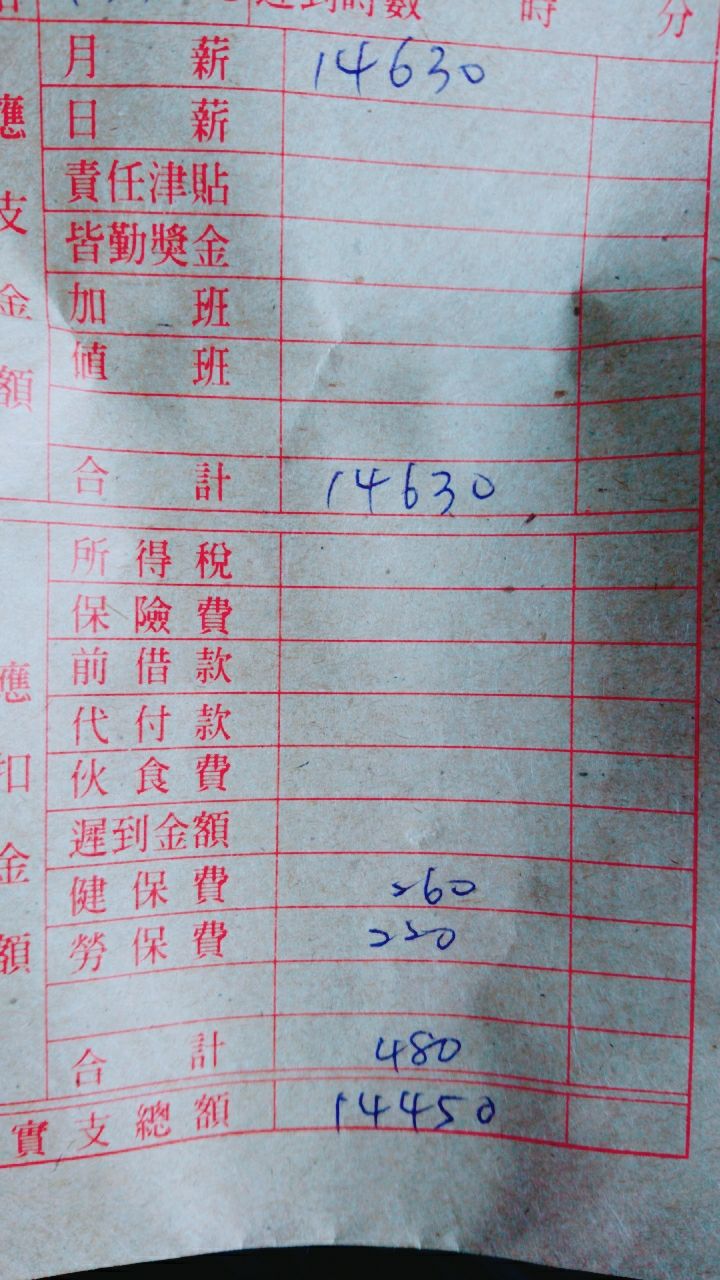 遲到時數 時 分
應支金額
月薪 14630
日薪
責任津貼
皆勤獎金
加班
値班
合計 14630
應扣金額
所得稅
保險費
前借款
代付款
伙食費
遲到金額
健保費 260
勞保費 220
合計 480
實支總額 14450